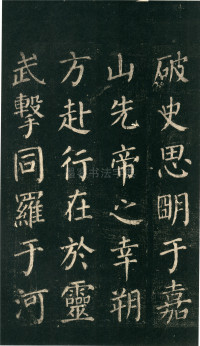 破史思明于嘉
山先帝之幸朔
方赴行在於靈
武擊同羅于河